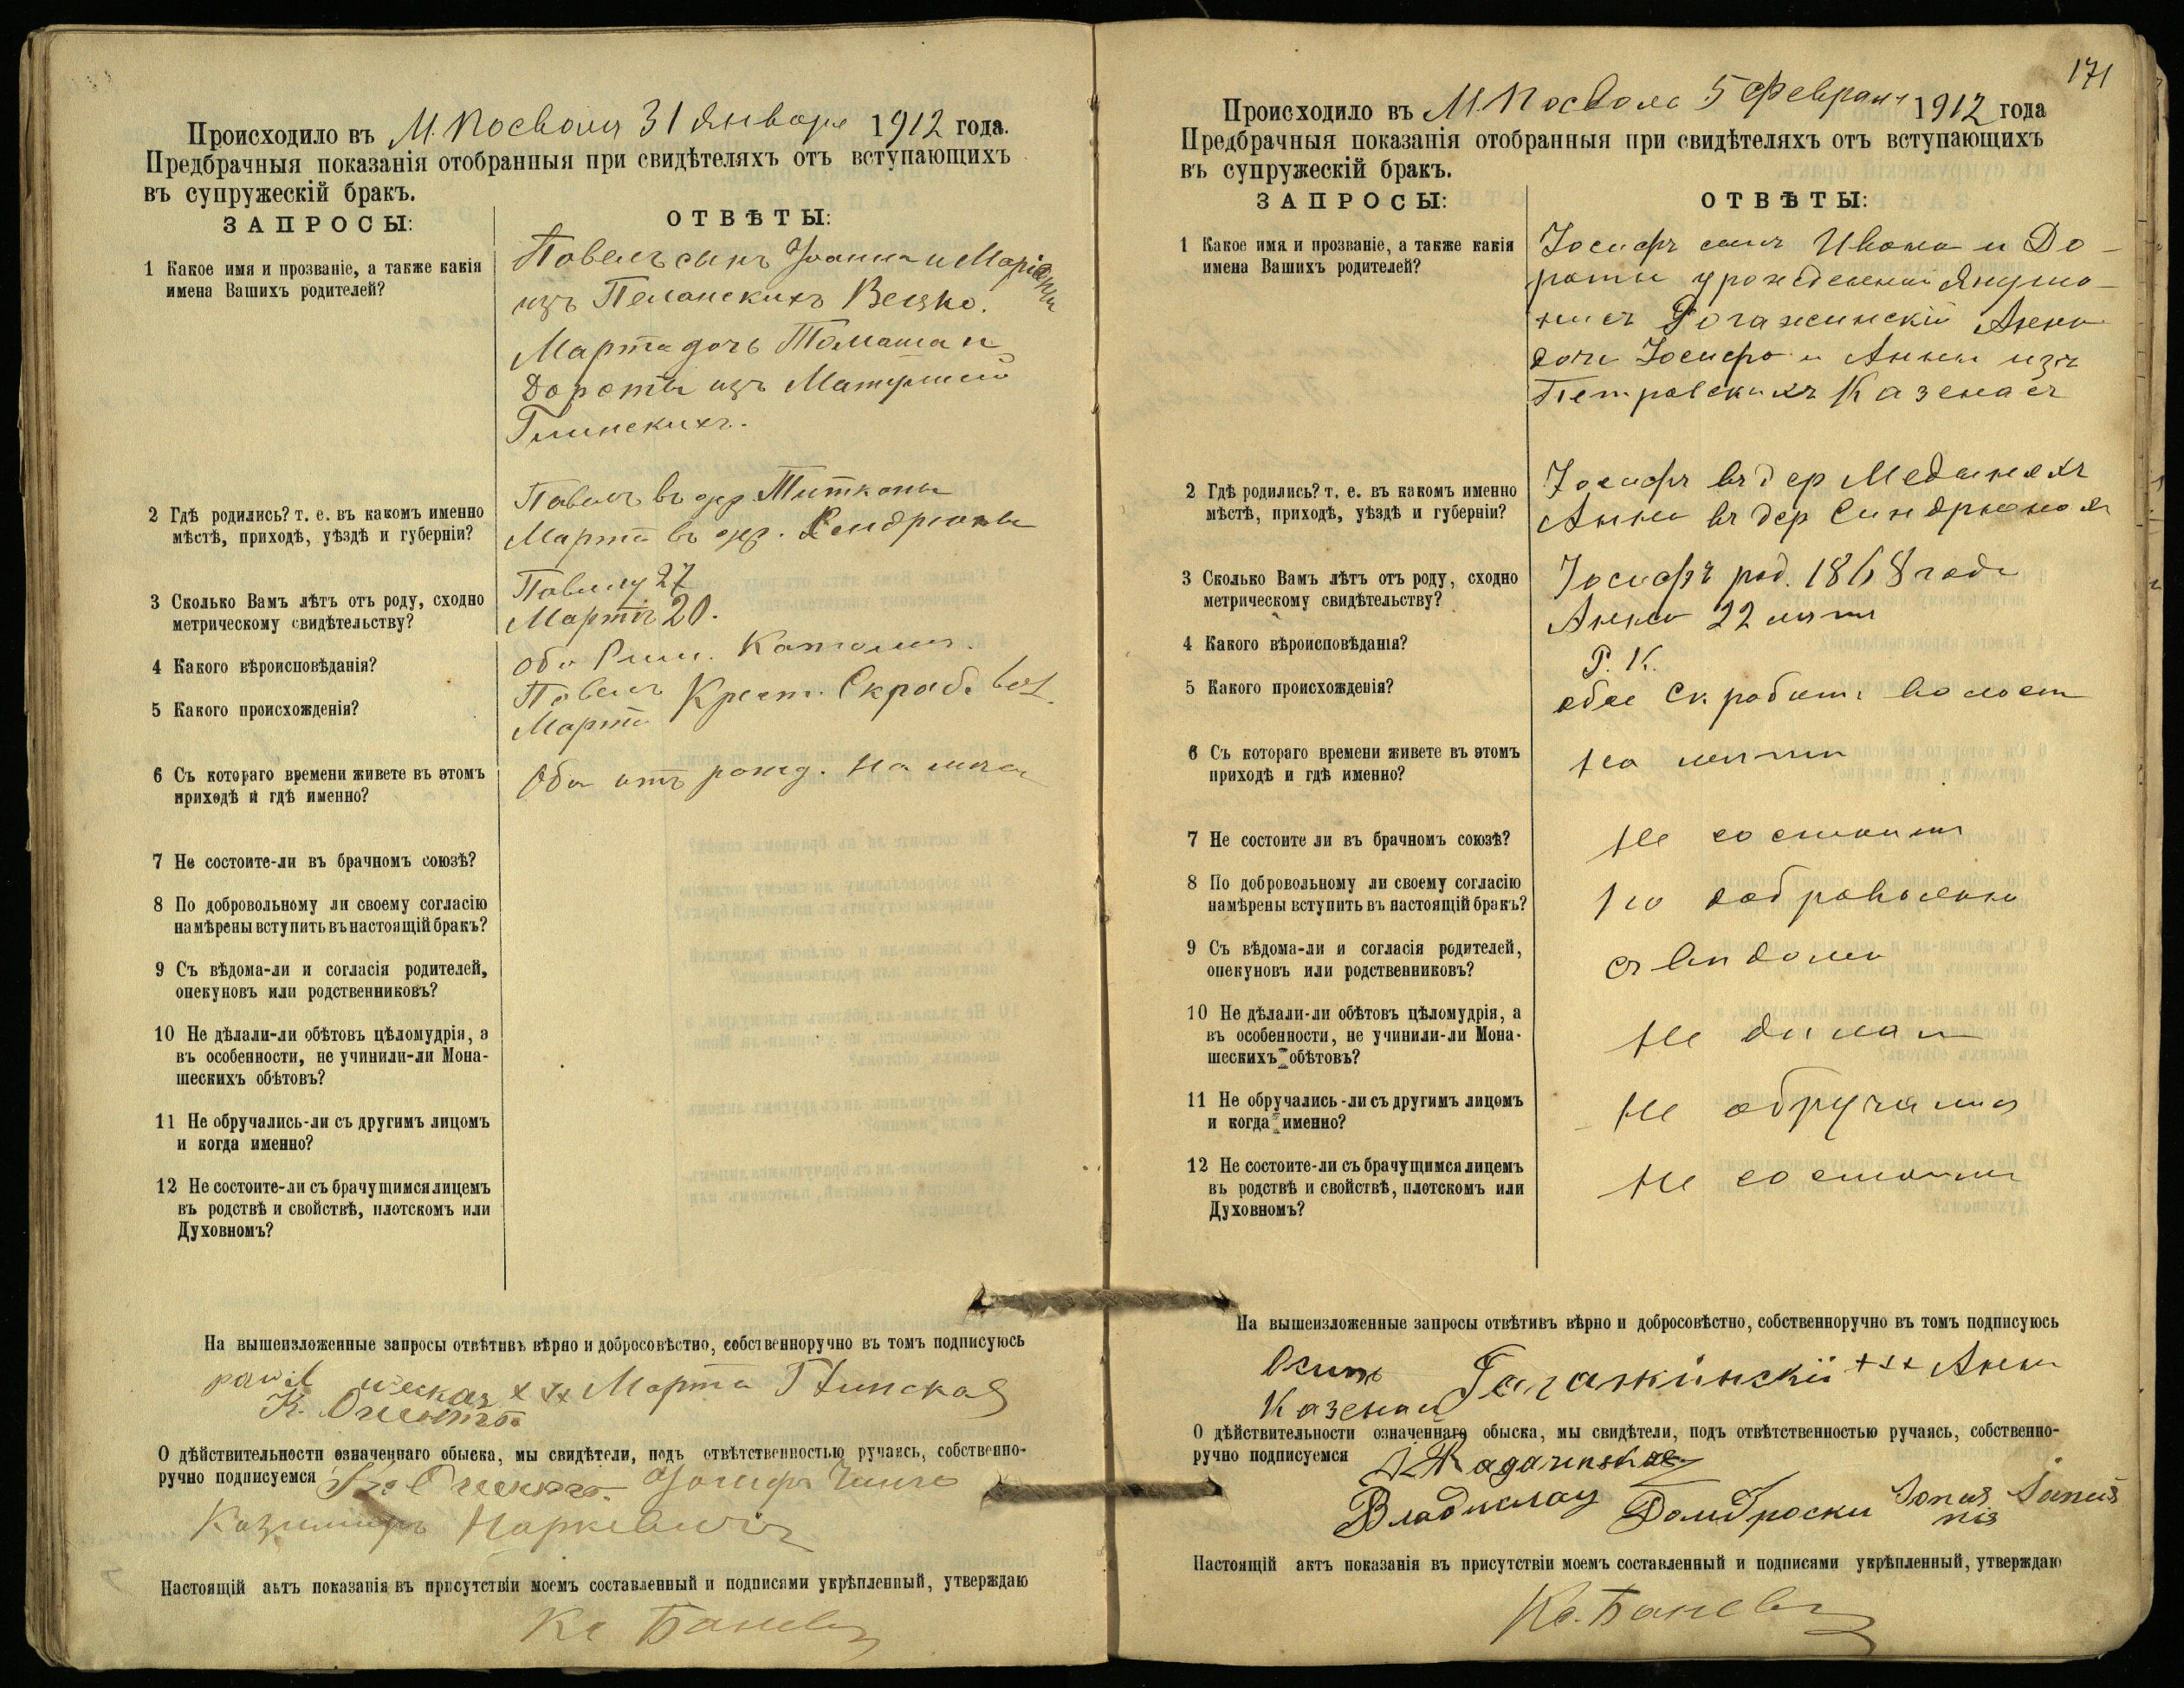 Происходило въ М. Посволя 31 Января 1912 года.
Предбрачныя показанія отобранныя при свидѣтеляхъ отъ вступающихъ
въ супружескій бракъ.
ЗАПРОСЫ:
ОТВѢТЫ:
1 Какое имя и прозваніе, а также какія
имена Вашихъ родителей?
Павелъ сынъ Іоанна и
изъ
Марта дочь Томаша и
Дороты изъ
Глинскихъ.
2 Гдѣ родились? т. е. въ какомъ именно
мѣстѣ, приходѣ, уѣздѣ и губерніи?
Павелъ въ дер. Титконы
Марта въ дер.
3 Сколько Вамъ лѣтъ отъ роду, сходно
метрическому свидѣтельству?
Павлу 27
Мартѣ 20.
4 Какого вѣроисповѣданія?
Оба Рим. Католич.
5 Какого происхожденія?
Павелъ Крест. Скроб. вол.
Марта
6 Съ котораго времени живете въ этомъ
приходѣ и гдѣ именно?
Оба отъ рожд. на
7 Не состоите-ли въ брачномъ союзѣ?
8 По добровольному ли своему согласію
намѣрены вступить въ настоящій бракъ?
9 Съ вѣдома-ли и согласія родителей,
опекуновъ или родственниковъ?
10 Не дѣлали-ли обѣтовъ цѣломудрія, а
въ особенности, не учинили-ли Мона-
шескихъ обѣтовъ?
11 Не обручались-ли съ другимъ лицомъ
и когда именно?
12 Не состоите-ли съ брачущимся лицемъ
въ родствѣ и свойствѣ, плотскомъ или
Духовномъ?
На вышеизложенные запросы отвѣтивъ вѣрно и добросовѣстно, собственноручно въ томъ подписуюсь
ххх Марта Глинская
О дѣйствительности означеннаго обыска, мы свидѣтели, подъ отвѣтственностью ручаясь, собственно-
ручно подписуемся
Казимиръ Наркевичъ
Настоящій актъ показанія въ присутствіи моемъ составленный и подписями укрѣпленный, утверждаю
Кс Баневи
171
Происходило въ М. Посволя 5 Февраля 1912 года
Предбрачныя показанія отобранныя при свидѣтеляхъ отъ вступающихъ
въ супружескій бракъ.
ЗАПРОСЫ:
ОТВѢТЫ:
1 Какое имя и прозваніе, а также какія
имена Вашихъ родителей?
Іосифъ сынъ Ивана и До-
роты урожденной Януша-
нисъ Анна
дочь Іосифа и Анны изъ
Петровскихъ Казенасъ
2 Гдѣ родились? т. е. въ какомъ именно
мѣстѣ, приходѣ, уѣздѣ и губерніи?
Іосифъ въ дер Мединяхъ
Анна въ дер
3 Сколько Вамъ лѣтъ отъ роду, сходно
метрическому свидѣтельству?
Іосифъ род. 1868 года
Анна 22 лѣтъ
4 Какого вѣроисповѣданія?
Р. К.
5 Какого происхожденія?
обое Скробишк волости
6 Съ котораго времени живете въ этомъ
приходѣ и гдѣ именно?
на
7 Не состоите ли въ брачномъ союзѣ?
не состоимъ
8 По добровольному ли своему согласію
намѣрены вступить въ настоящій бракъ?
по добровольно
9 Съ вѣдома-ли и согласія родителей,
опекуновъ или родственниковъ?
съ вѣдома
10 Не дѣлали-ли обѣтовъ цѣломудрія, а
въ особенности, не учинили-ли Мона-
шескихъ обѣтовъ?
не дѣлали
11 Не обручались-ли съ другимъ лицомъ
и когда именно?
не обручались
12 Не состоите-ли съ брачущимся лицемъ
въ родствѣ и свойствѣ, плотскомъ или
Духовномъ?
не состоимъ
На вышеизложенные запросы отвѣтивъ вѣрно и добросовѣстно, собственноручно въ томъ подписуюсь
Осипъ ххх Анна
Казенас
О дѣйствительности означеннаго обыска, мы свидѣтели, подъ отвѣтственностью ручаясь, собственно-
ручно подписуемся
Владислау Домброски
Настоящій актъ показанія въ присутствіи моемъ составленный и подписями укрѣпленный, утверждаю
Кс. Баневи